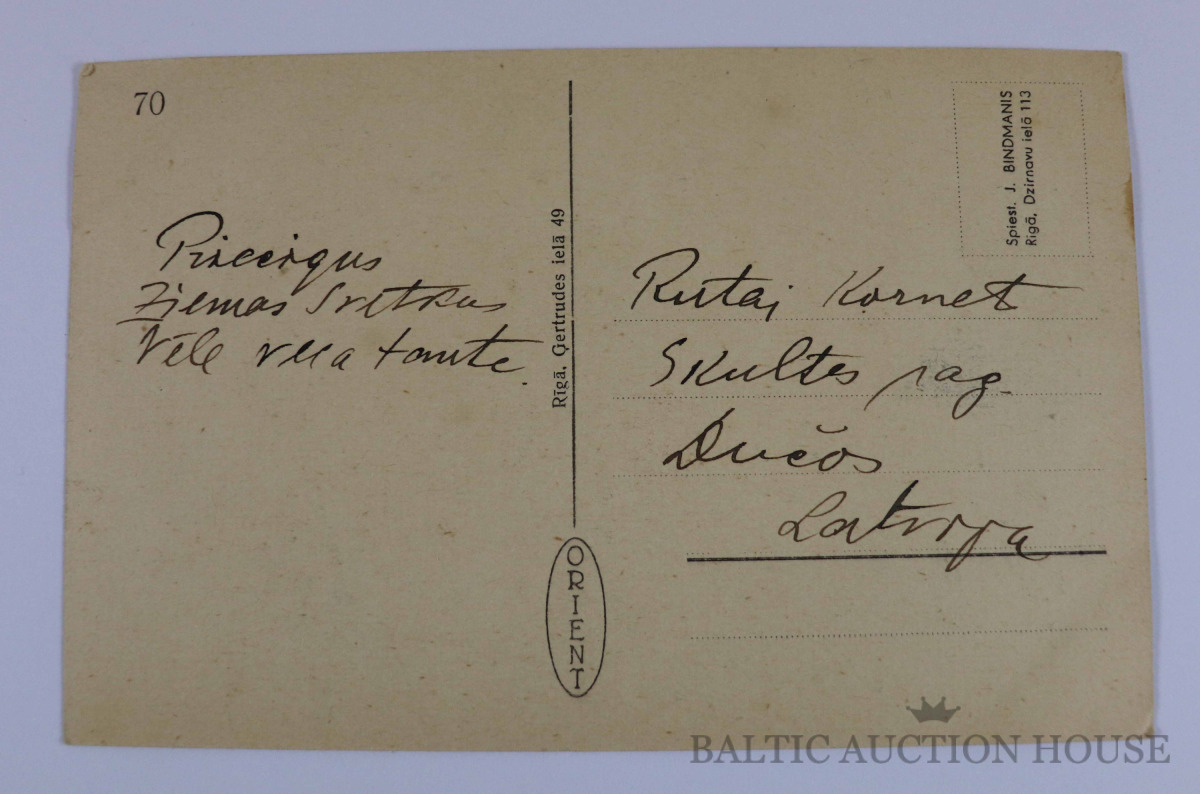 70
Pirccirgus
Ziemas Svetkus
Vēlē veca tante.
Rīgā, Ģertrudes ielā 49
ORIENT
Spiest. J. BINDMANIS
Rīgā, Dzirnavu ielā 113
Rutai Kornet
Skultes pag.
Dučos
Latvija
BALTIC AUCTION HOUSE